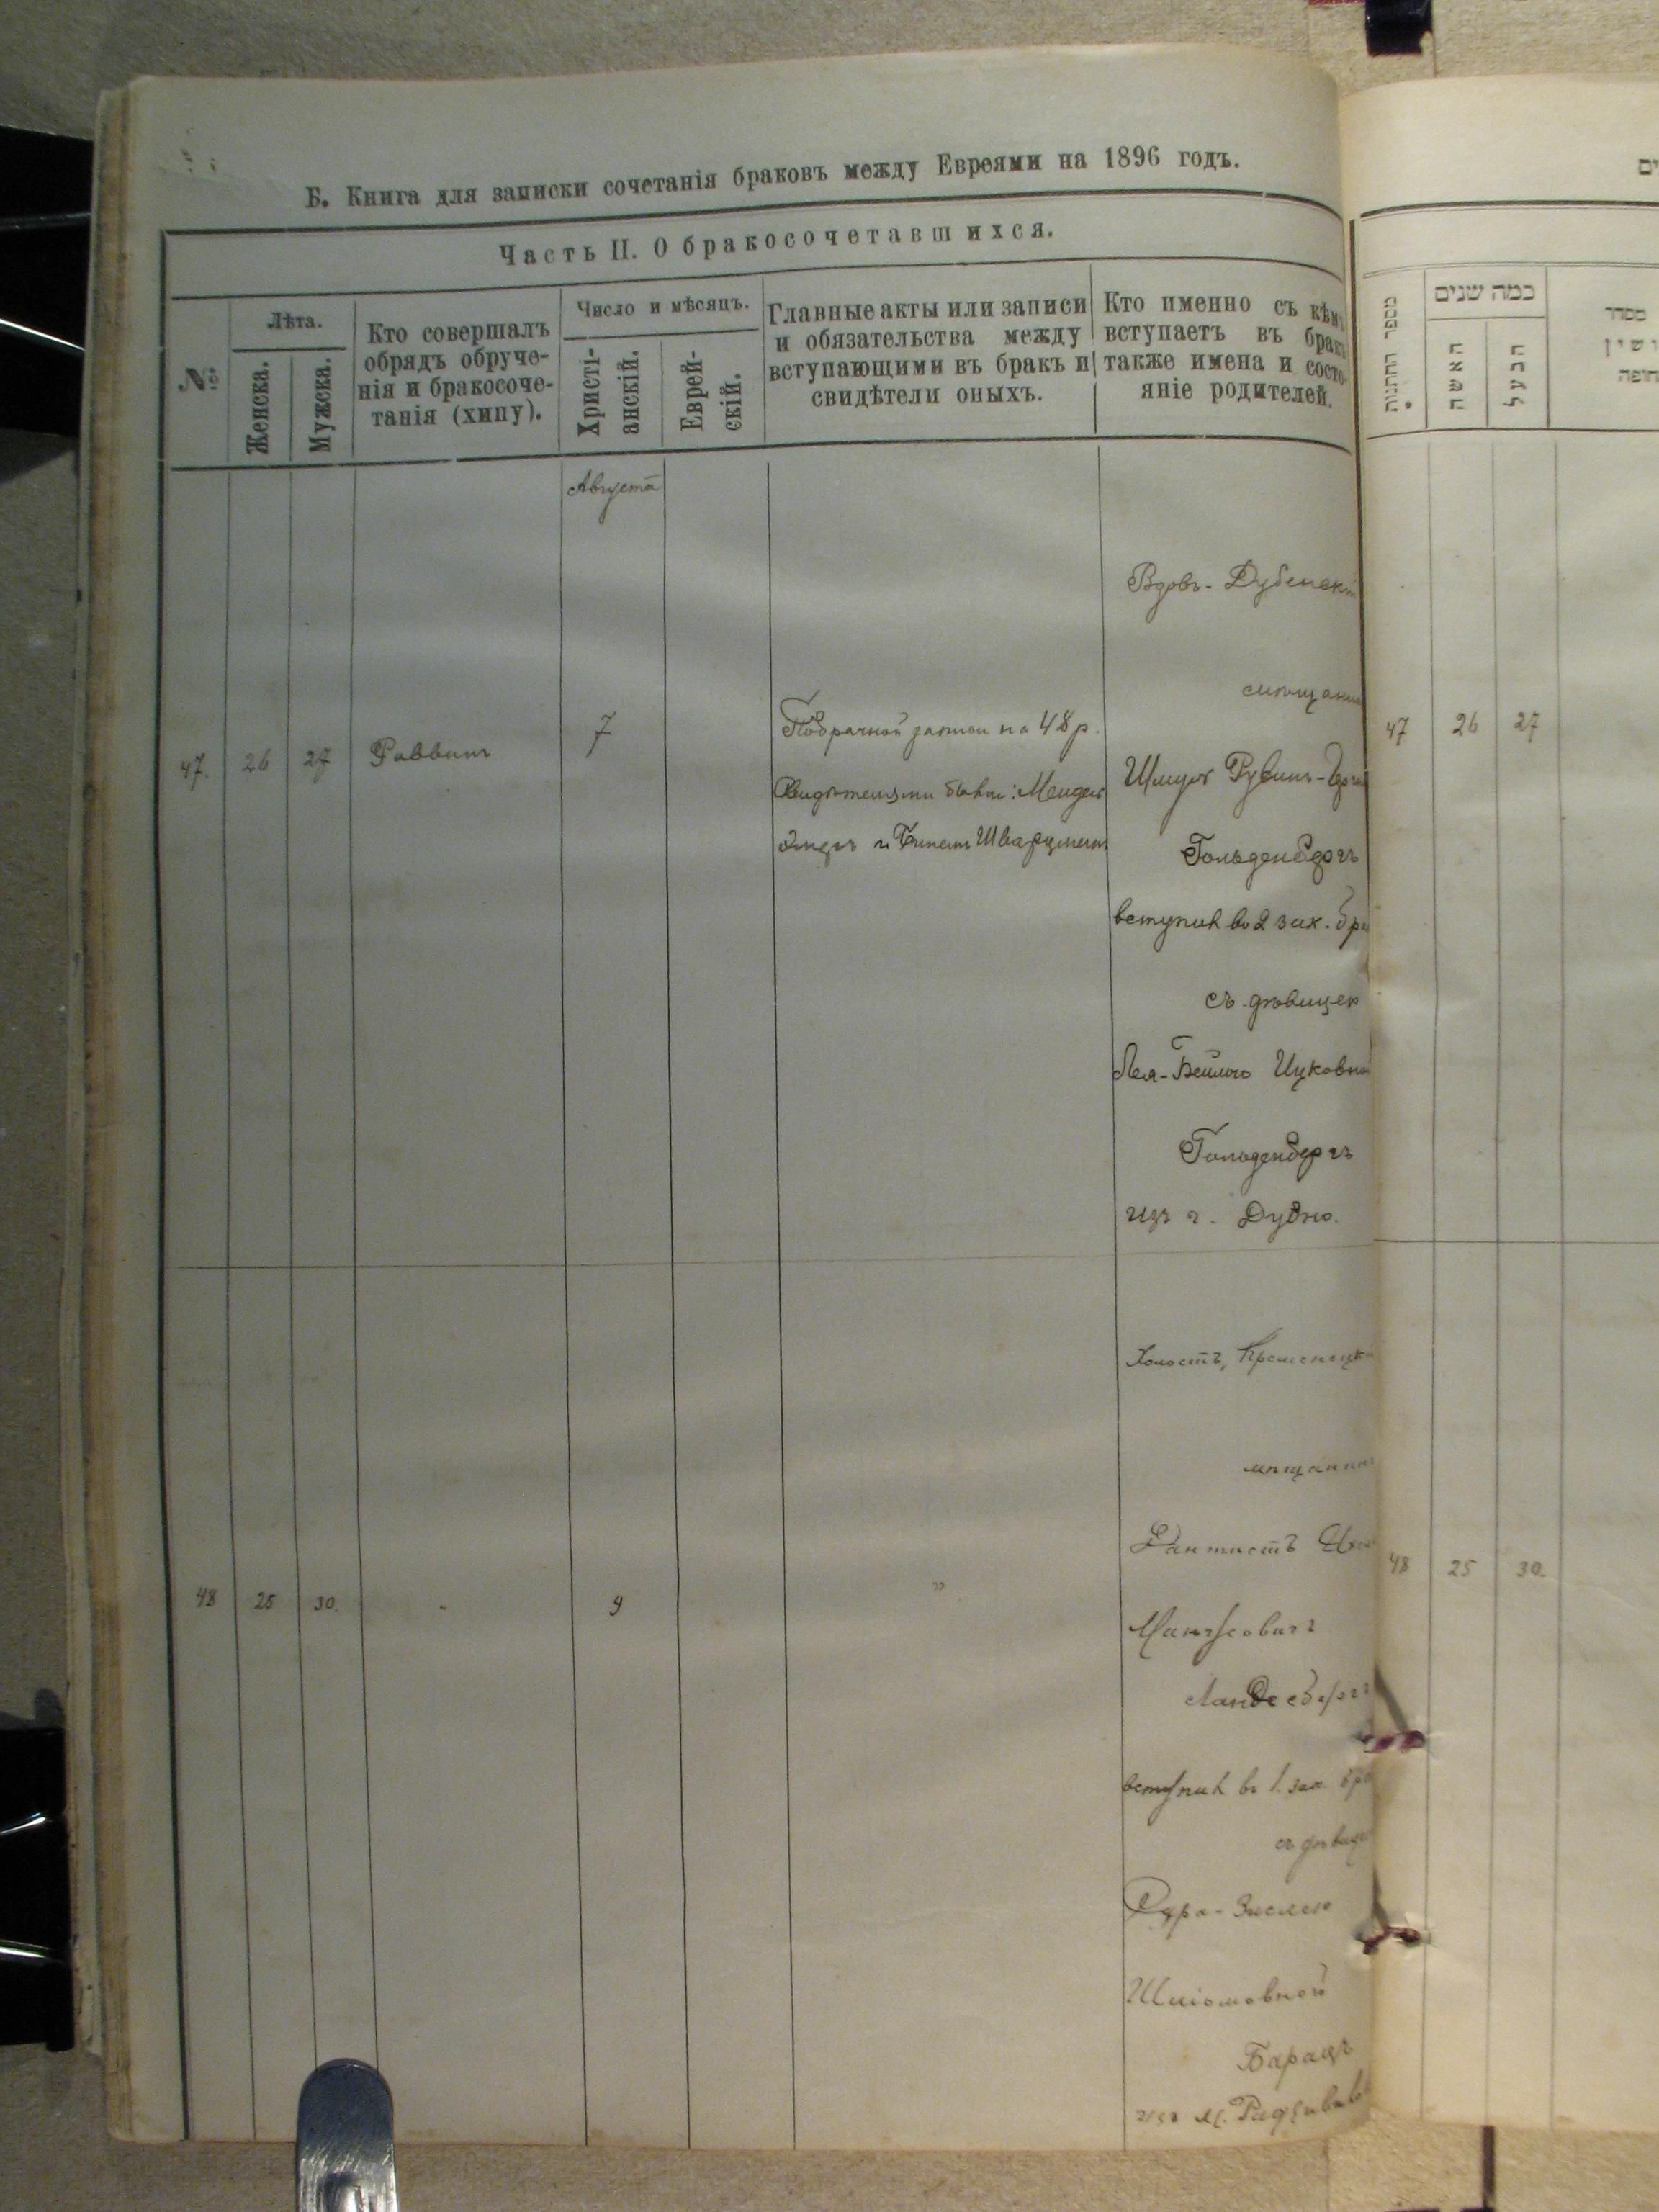 Б. Книга для записки сочетанія браковъ между Евреями на 1896 годъ.
Часть II. О бракосочетавшихся.
№
Лѣта.
Женска.
Мужска.
Кто совершалъ
обрядъ обруче-
нія и бракосоче-
танія (хипу).
Число и мѣсяцъ.
Христі-
анскій.
Еврей-
скій.
Главные акты или записи
и обязательства между
вступающими въ бракъ и
свидѣтели оныхъ.
Кто именно съ кѣмъ
вступаетъ въ бракъ
также имена и состо-
яніе родителей.
Августа
47. 26 27 Раввинъ 7
на 48 р.
были: Мендель
и
Вдовъ - Дубенскі
мѣщанин
Рувинъ-
Гольденбергъ
вступил во 2 зак. бра
съ дѣвицей
Лея-Бейлою Ицковно
Гольденбергъ
изъ г. Дубно.
48 25 30. " 9 "
Холостъ, Кременецкі
мѣщанинъ
Дантистъ
Ландесбергъ
вступил въ 1. зак. бра
съ дѣвице
Шліомовной
Барацъ
изъ м. Радзивил
ים
מספר החתנות
כמה שנים
האשה
הבעל
מסדר
47 26 27
48 25 30.